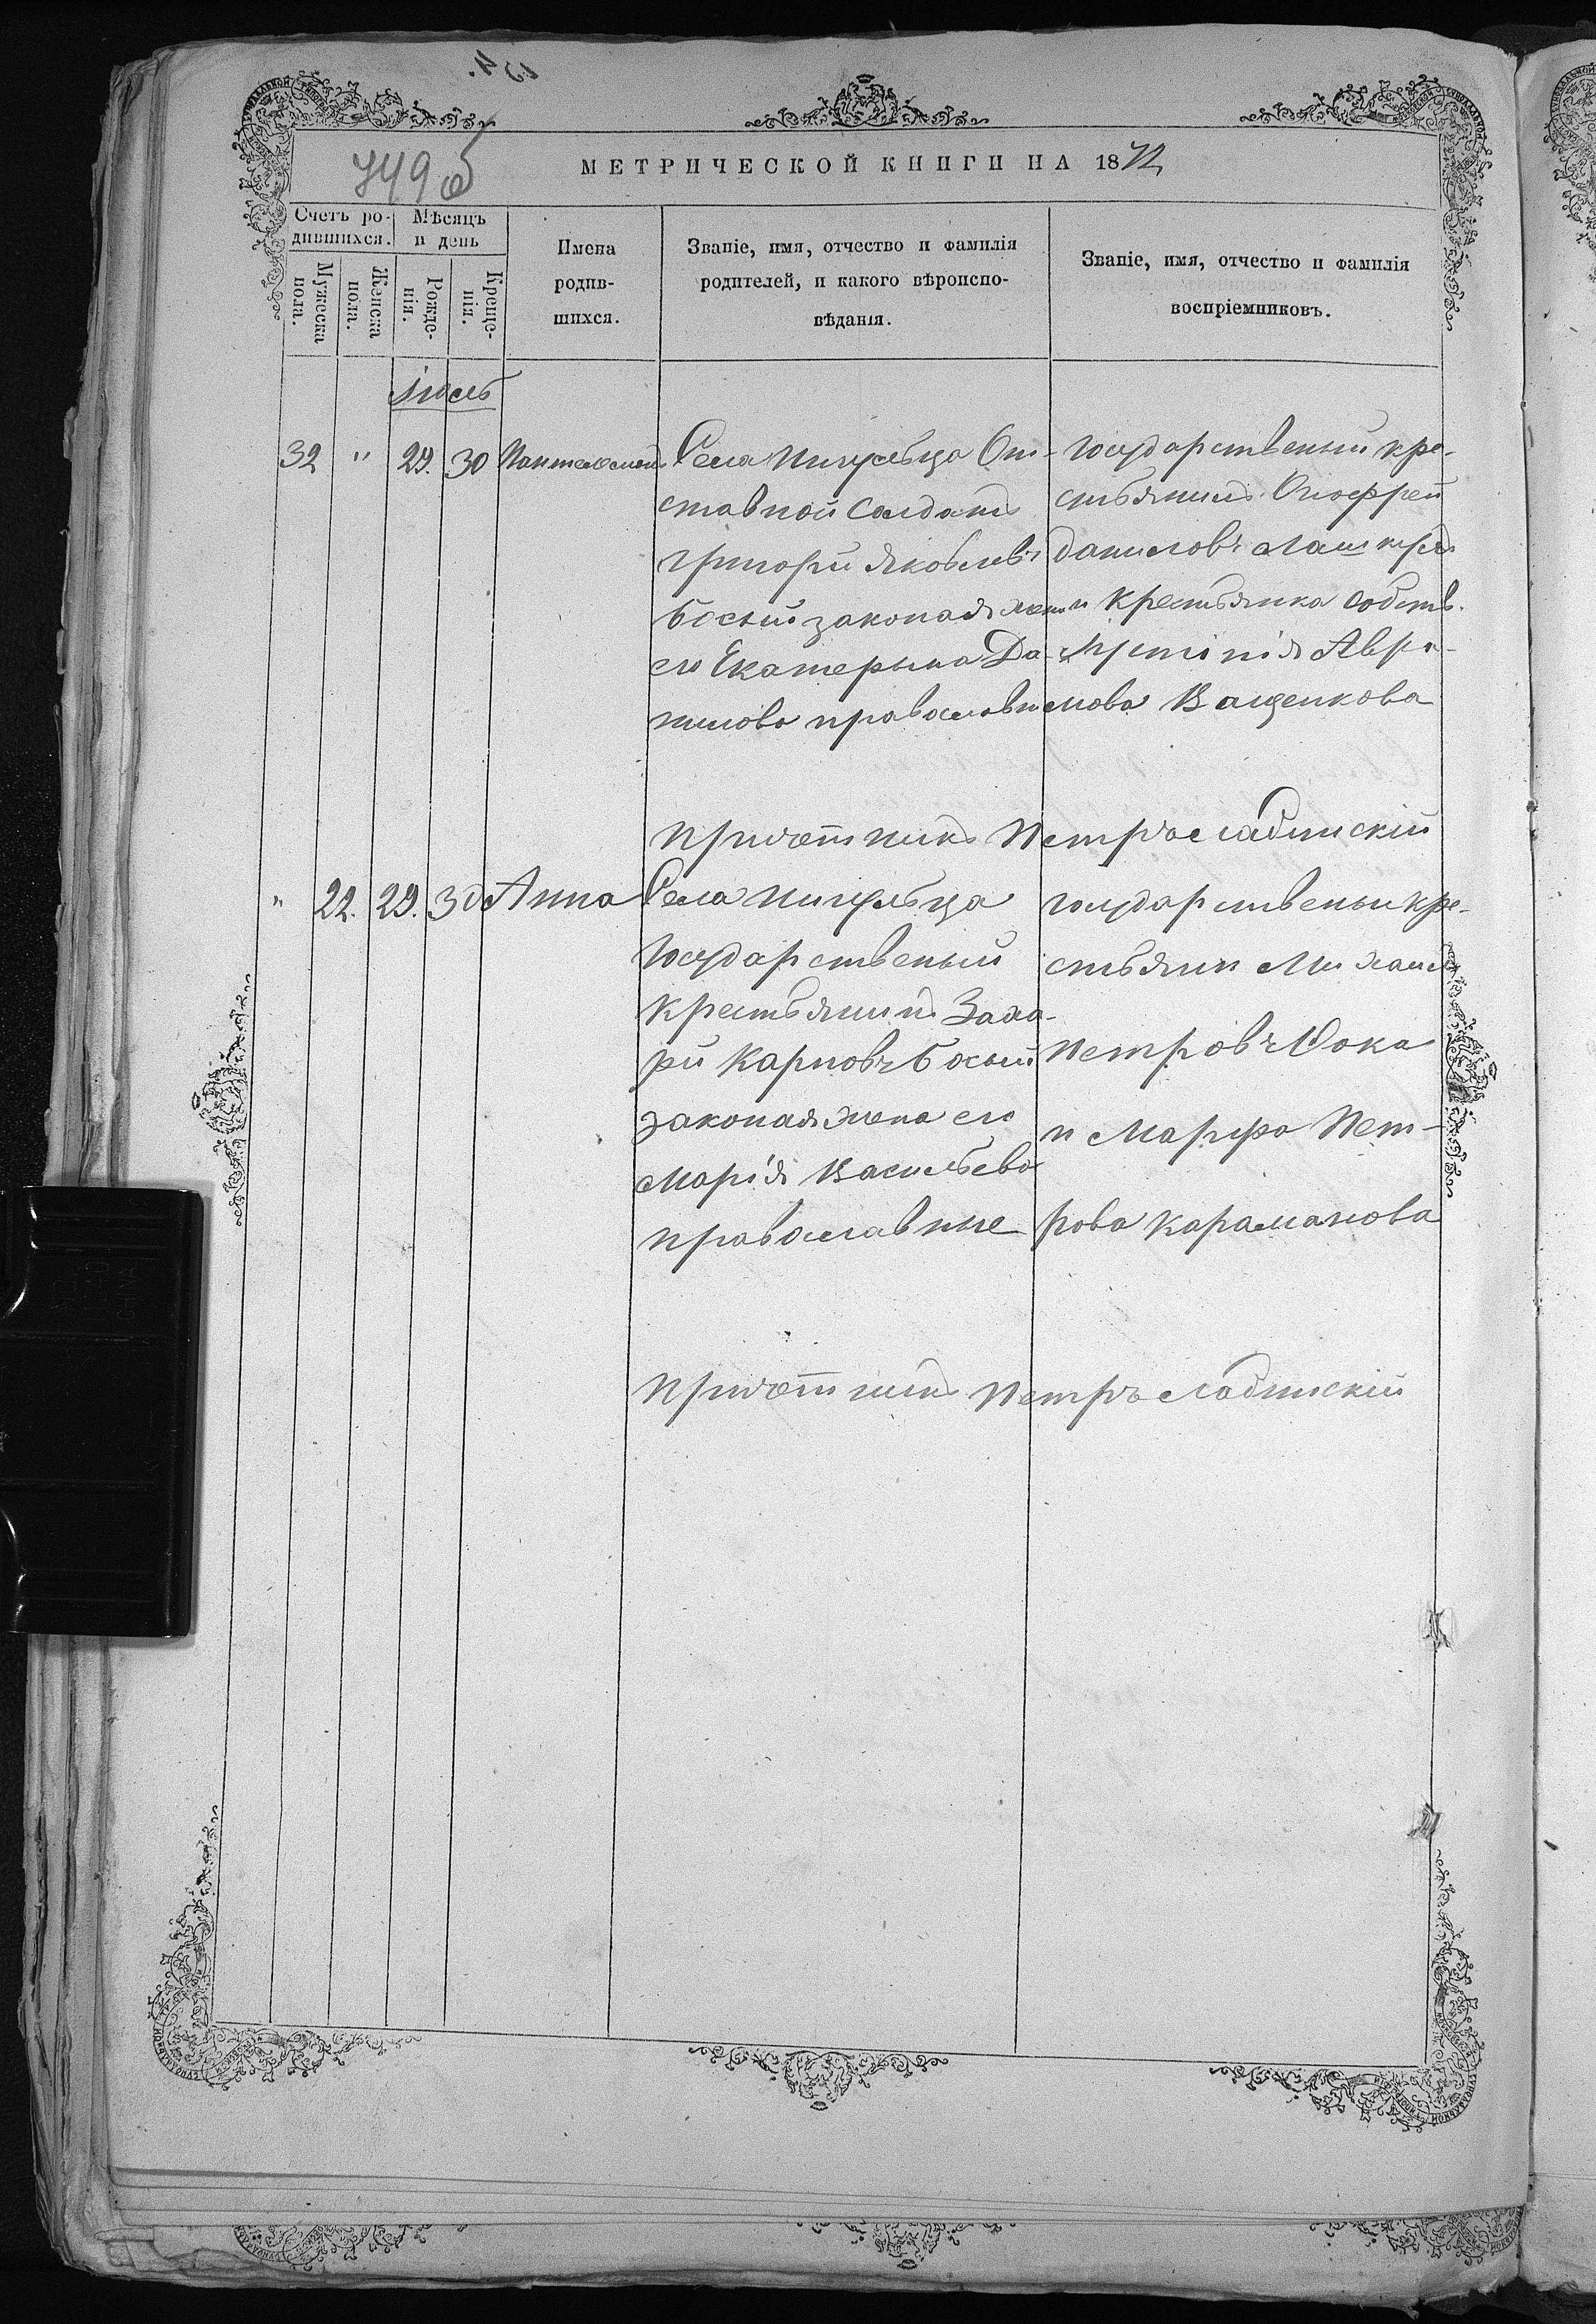 749 об
МЕТРИЧЕСКОЙ КНИГИ НА 1872
Счетъ ро-
дившихся.
Мѣсяцъ
и день
Мужеска
пола.
Женска
пола.
Рожде-
нія.
Креще-
нія.
Имена
родив-
шихся.
Званіе, имя, отчество и фамилія
родителей, и какого вѣроиспо-
вѣданія.
Званіе, имя, отчество и фамилія
воспріемниковъ.
Іюль
32 " 29. 30 Пантелеимонъ
Села Пищельца От-
ставной Солдатъ
Григорий Яковлевъ
Босый законая жена
его Екатерына Да-
нилова православн
Государственый кре-
стьянинъ Оноффрей
Даниловъ Лашкулъ
и крестьянка собств.
Устинія Авра-
мова Ващенкова
Причетникъ Петръ Ладинскій
" 22. 29. 30 Анна
Села Пищельца
Государственый
крестьянинъ Заха-
рий Карповъ Босый
законая жена его
Марія Васильева
православные
государственый кре-
стьянин Михаил
Петровъ Сока
и Марфа Пет-
рова Караманова
Причетникъ Петръ Ладинскій